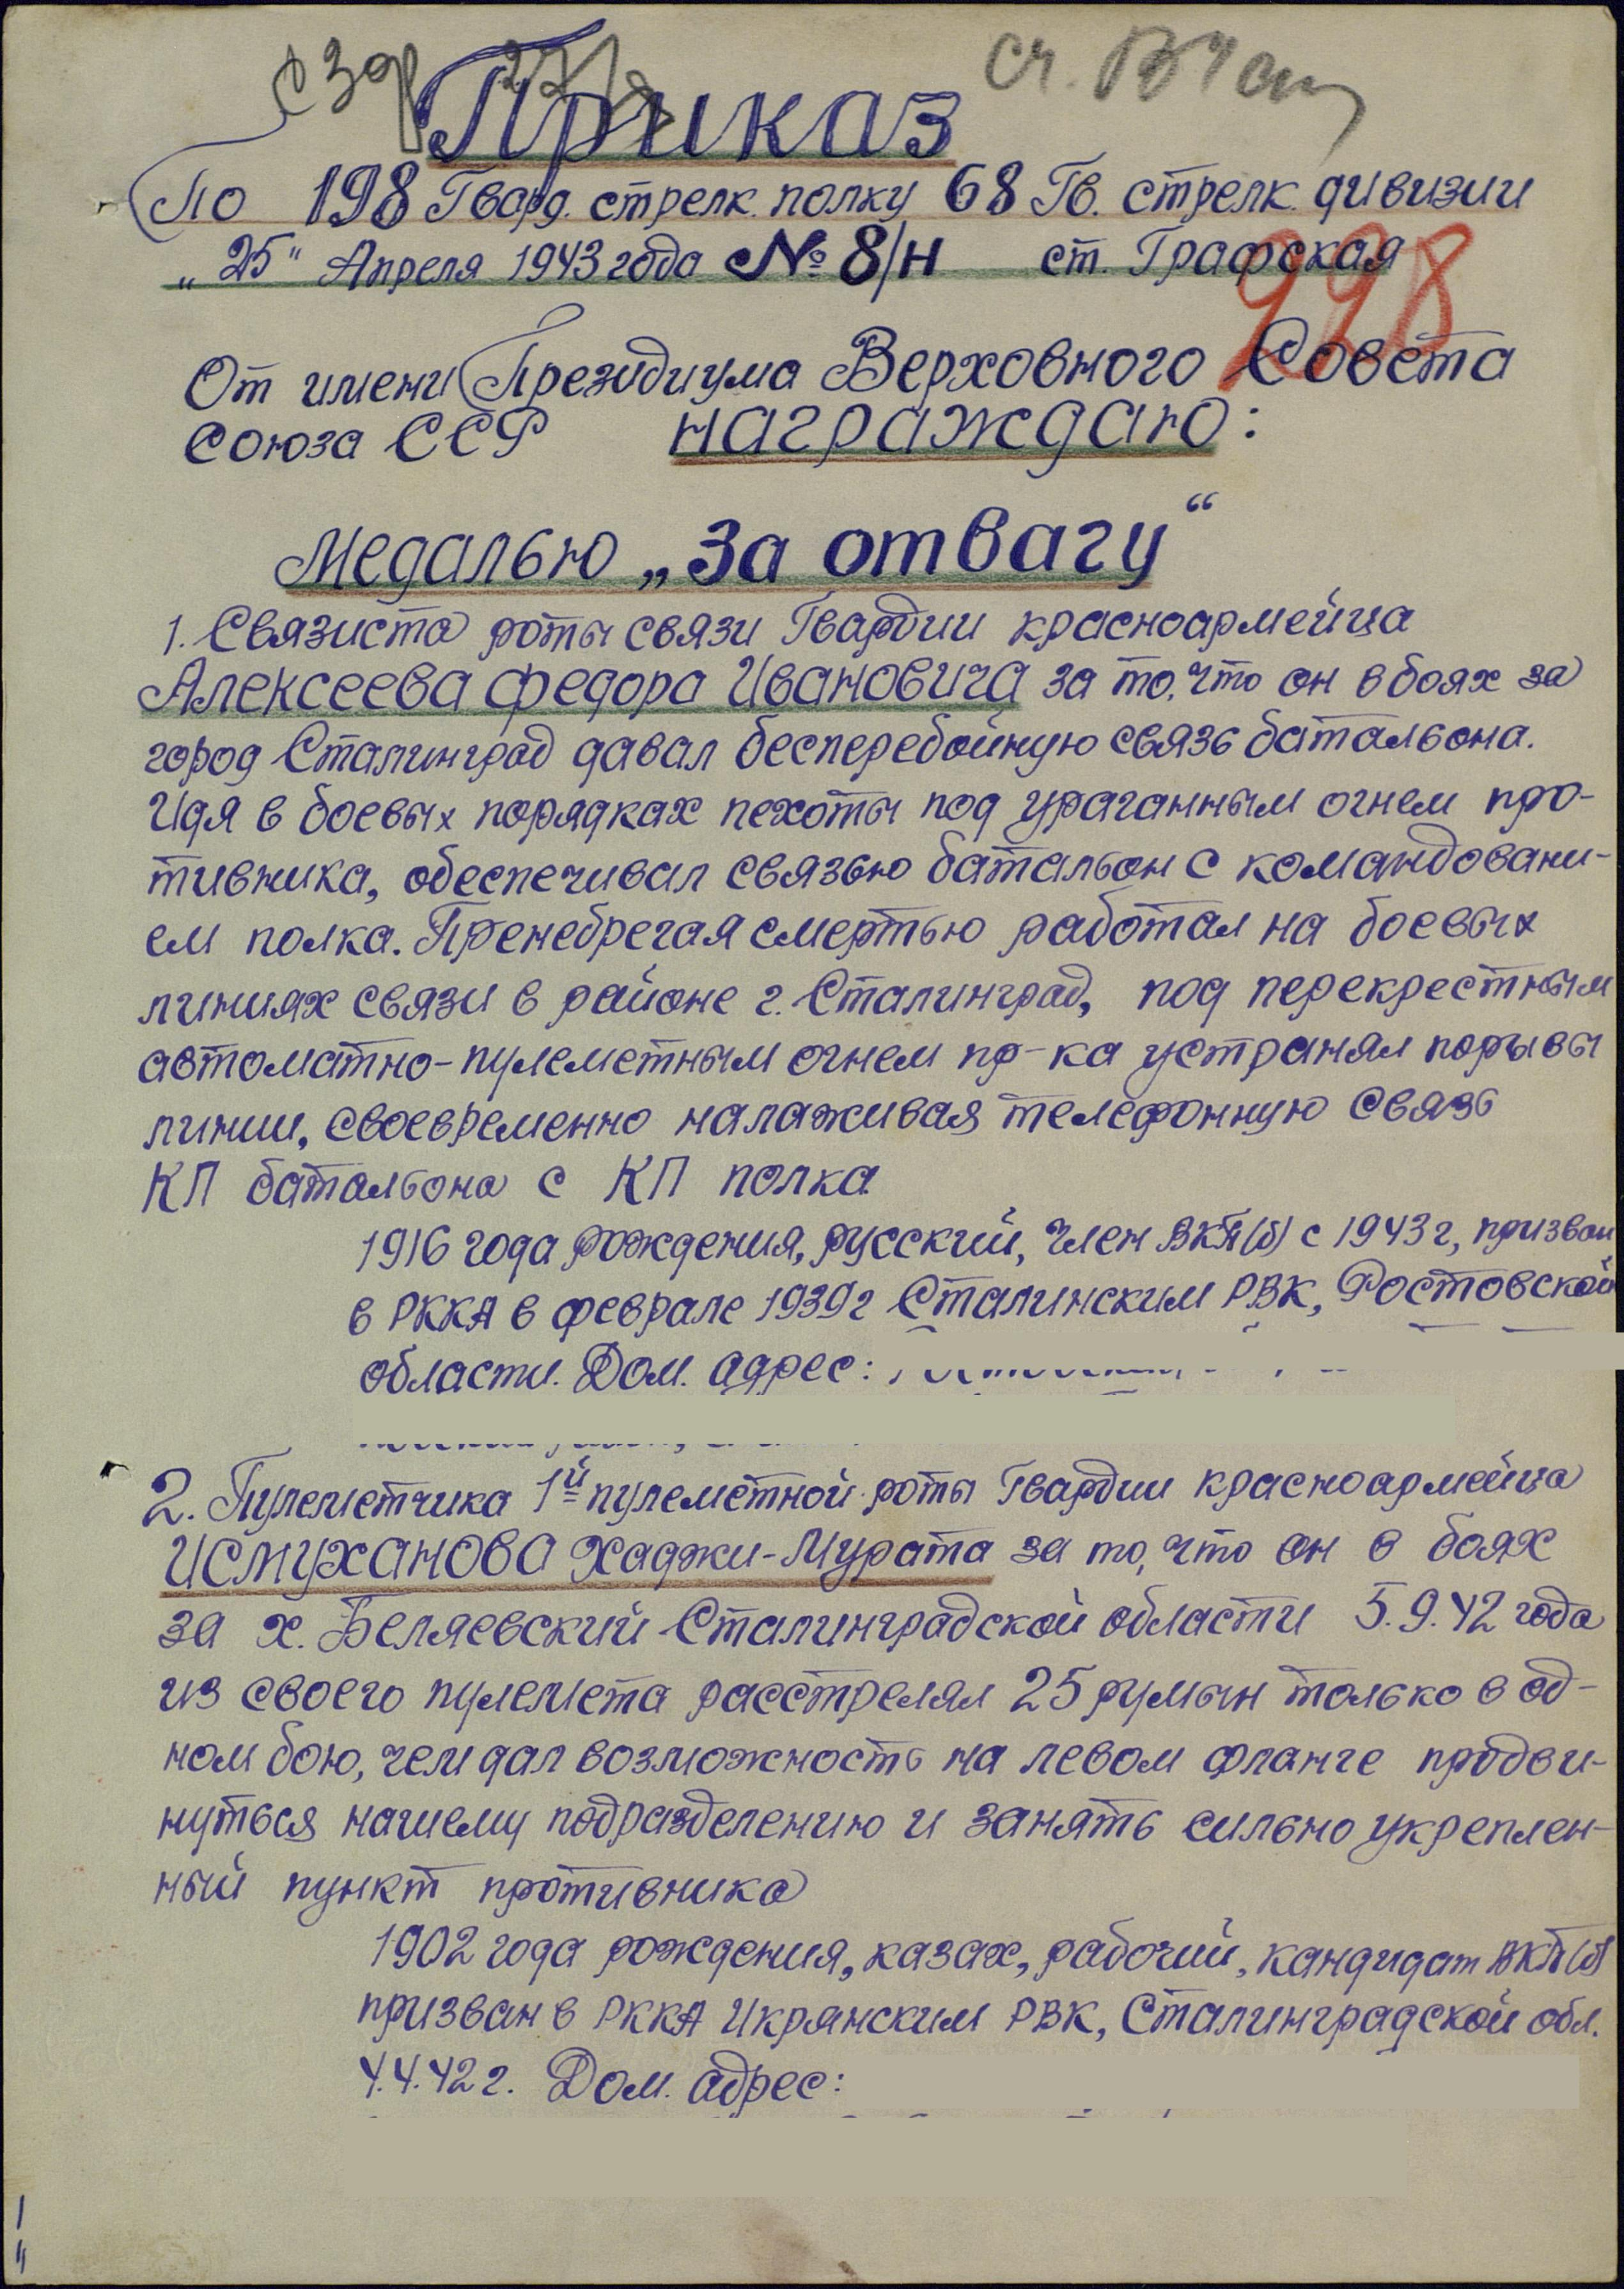 Приказ
По 198 Гвард. стрелк. полку 68 Гв. стрелк. дивизии
„25“ Апреля 1943 года № 8/н ст. Графская
298
От имени Президиума Верховного Совета
Союза ССР награждаю:
Медалью „За отвагу“
1. Связиста роты связи Гвардии красноармейца
Алексеева Федора Ивановича за то, что он в боях за
город Сталинград давал бесперебойную связь батальона.
Идя в боевых порядках пехоты под ураганным огнем про-
тивника, обеспечивал связью батальон с командовани-
ем полка. Пренебрегая смертью работал на боевых
линиях связи в районе г. Сталинград, под перекрестным
автоматно-пулеметным огнем пр-ка устранял порывы
линии, своевременно налаживая телефонную связь
КП батальона с КП полка
1916 года рождения, русский, член ВКП(б) с 1943 г, призван
в РККА в феврале 1939 г Сталинским РВК, Ростовской
области. Дом. адрес:
2. Пулеметчика 1й пулеметной роты Гвардии красноармейца
ИСМУХАНОВА Хаджи-Мурата за то, что он в боях
за х. Беляевский Сталинградской области 5.9.42 года
из своего пулемета расстрелял 25 румын только в од-
ном бою, чем дал возможность на левом фланге продви-
нуться нашему подразделению и занять сильно укреплен-
ный пункт противника
1902 года рождения, казах, рабочий, кандидат ВКП(б)
призван в РККА Икрянским РВК, Сталинградской обл.
4.4.42 г. Дом. адрес: